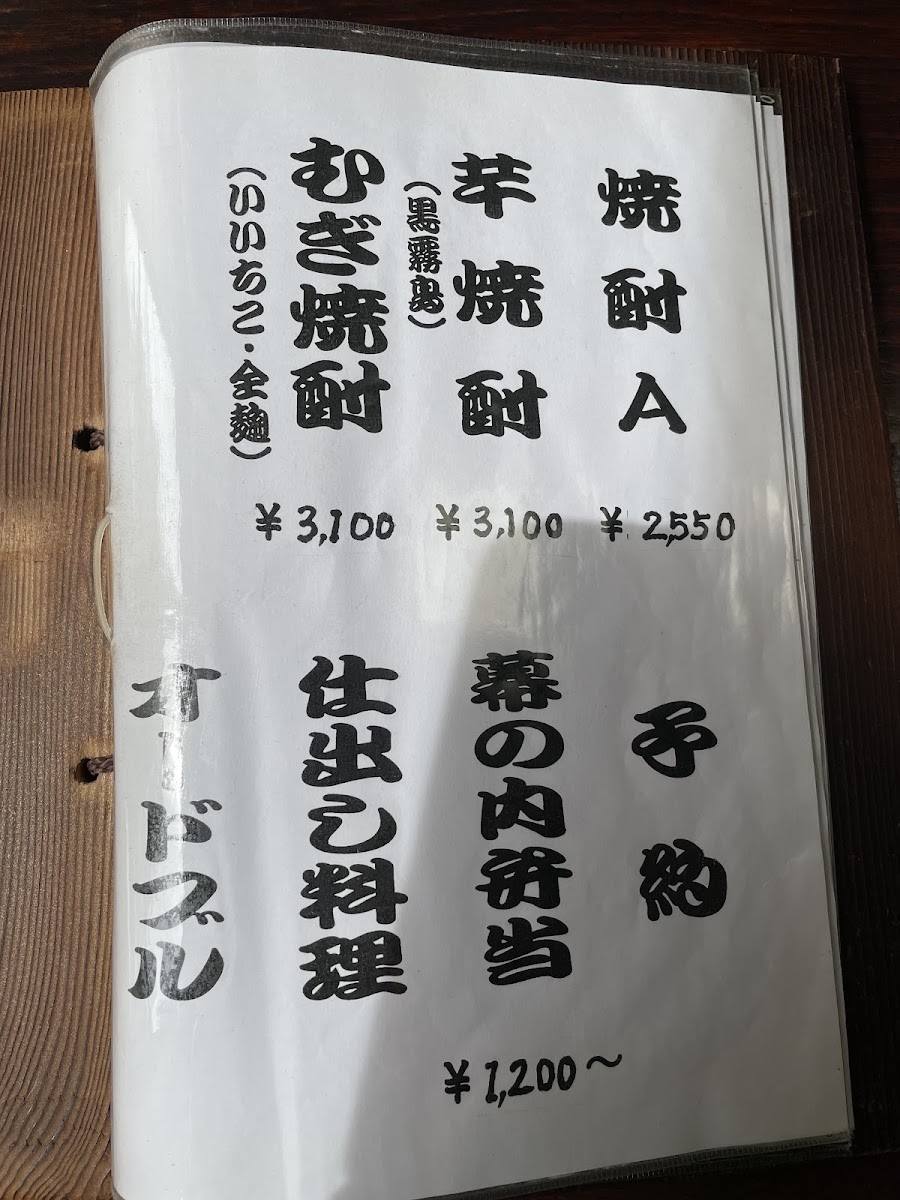 焼酎A
¥2,550
芋焼酎
(黒霧島)
¥3,100
むぎ焼酎
(いいちこ・全麹)
¥3,100
予約
幕の内弁当
¥1,200〜
仕出し料理
オードブル